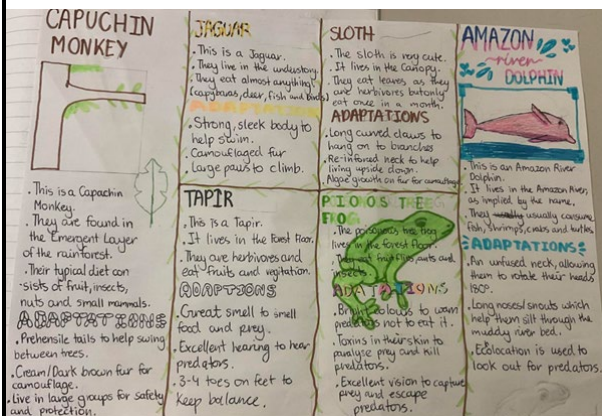 CAPUCHIN
MONKEY
. This is a Capachin
Monkey.
. They are found in
the Emergent Layer
of the rainforest.
. Their typical diet con
-sists of fruit, insects,
nuts and small mammals.
ADAPTATIONS
. Prehensile tails to help swing
between trees.
. Cream/Dark brown fur for
camouflage.
. Live in large groups for safety
and protection.
JAGUAR
. This is a Jaguar.
. They live in the understory.
. They eat almost anything!
(capybaras, deer, fish and birds)
ADAPTATION
. Strong, sleek body to
help swim.
. Camouflaged fur
. Large paws to climb.
TAPIR
. This is a Tapir.
. It lives in the Forest Floor.
. They are herbivores and
eat fruits and vegitation.
ADAPTIONS
. Great smell to smell
food and prey.
. Excellent hearing to hear
predators.
. 3-4 toes on feet to
keep balance.
SLOTH
. The sloth is very cute.
. It lives in the Canopy.
. They eat leaves as they
are herbivores but only
eat once in a month.
ADAPTATIONS
. Long curved claws to
hang on to branches
. Re-inforced neck to help
living upside down.
. Algae growth on fur for camouflage
TREE
FROG
. The poisonous tree frog
lives in the forest floor.
. They eat fruit flies, ants and
insects.
ADAPTATIONS
. Bright colours to warn
predators not to eat it.
. Toxins in their skin to
paralyse prey and kill
predators.
. Excellent vision to capture
prey and escape
predators.
AMAZON
river
DOLPHIN
. This is an Amazon River
Dolphin.
. It lives in the Amazon River,
as implied by the name.
. They usually consume
fish, shrimps, crabs and turtles.
ADAPTATIONS
. An unfused neck, allowing
them to rotate their heads
180°.
. Long noses/snouts which
help them sift through the
muddy river bed.
. Ecolocation is used to
look out for predators.